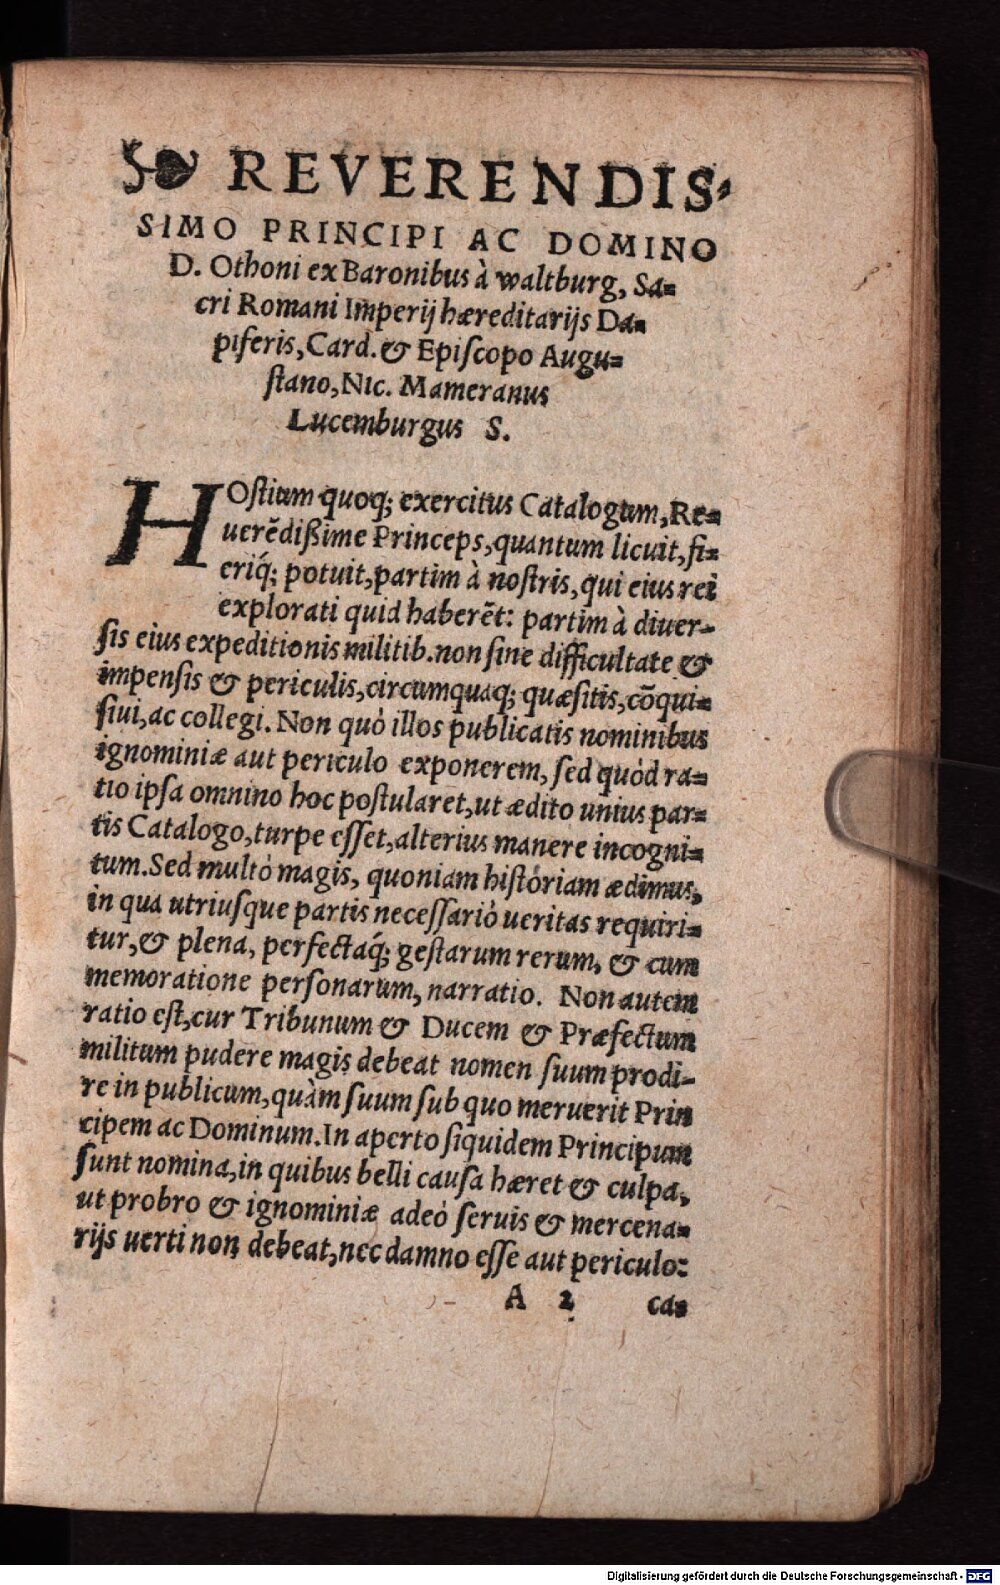 ❧ REVERENDIS-
SIMO PRINCIPI AC DOMINO
D. Othoni ex Baronibus à waltburg, Sa=
cri Romani Imperij hæreditarijs Da=
piferis, Card. & Epiſcopo Augu=
ſtano, Nic. Mameranus
Lucemburgus S.
HOſtium quoq; exercitus Catalogum, Re=
uerẽdißime Princeps, quantum licuit, fi=
eriq́; potuit, partim à noſtris, qui eius rei
explorati quid haberẽt: partim à diuer-
ſis eius expeditionis militib. non ſine difficultate &
impenſis & periculis, circumquaq; quæſitis, cõqui=
ſiui, ac collegi. Non quò illos publicatis nominibus
ignominiæ aut periculo exponerem, ſed quòd ra=
tio ipſa omnino hoc poſtularet, ut ædito unius par=
tis Catalogo, turpe eſſet, alterius manere incogni=
tum. Sed multò magis, quoniam hiſtóriam ædimus,
in qua utriuſque partis neceſſariò ueritas requiri=
tur, & plena, perfectaq́; geſtarum rerum, & cum
memoratione perſonarum, narratio. Non autem
ratio eſt, cur Tribunum & Ducem & Præfectum
militum pudere magis debeat nomen ſuum prodi-
re in publicum, quàm ſuum ſub quo meruerit Prin
cipem ac Dominum. In aperto ſiquidem Principum
ſunt nomina, in quibus belli cauſa hæret & culpa,
ut probro & ignominiæ adeò ſeruis & mercena=
rijs uerti non debeat, nec damno eſſe aut periculo:
A 2 ca=
Digitalisierung gefördert durch die Deutsche Forschungsgemeinschaft - DFG